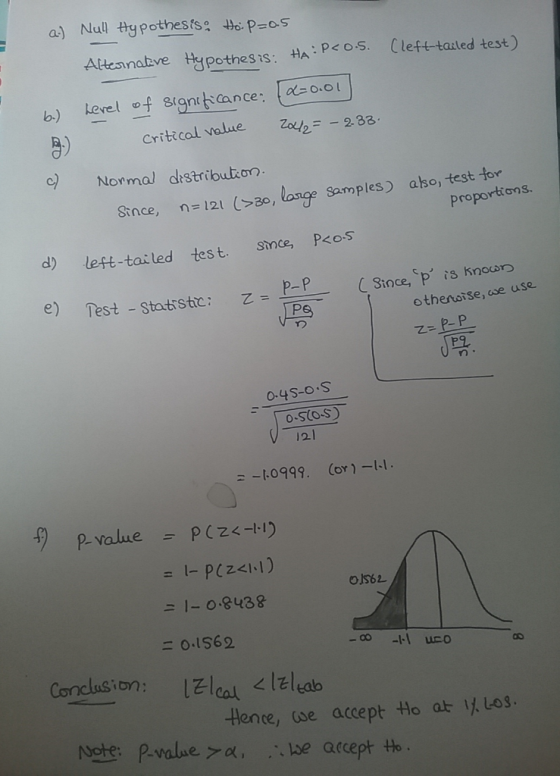 a.) Null Hypothesis: H₀: P=0.5
Alternative Hypothesis: Hᴀ: P<0.5. (left-tailed test)
b.) Level of significance: α=0.01
g.) Critical value Zα/2 = -2.33.
c) Normal distribution.
Since, n=121 (>30, large samples) also, test for
proportions.
d) left-tailed test. since, P<0.5
e) Test-Statistic: Z = p-P / √(PQ/n)
(Since, 'P' is known
otherwise, we use
Z = p-P / √(pq/n).
= 0.45-0.5 / √(0.5(0.5)/121)
= -1.0999. (or) -1.1.
f) P-value = P(Z<-1.1)
= 1-P(Z<1.1)
= 1-0.8438
= 0.1562
0.1562
-∞ -1.1 u=0 ∞
Conclusion: |Z|cal < |Z|tab
Hence, we accept H₀ at 1% LOS.
Note: P-value > α, ∴ we accept H₀.